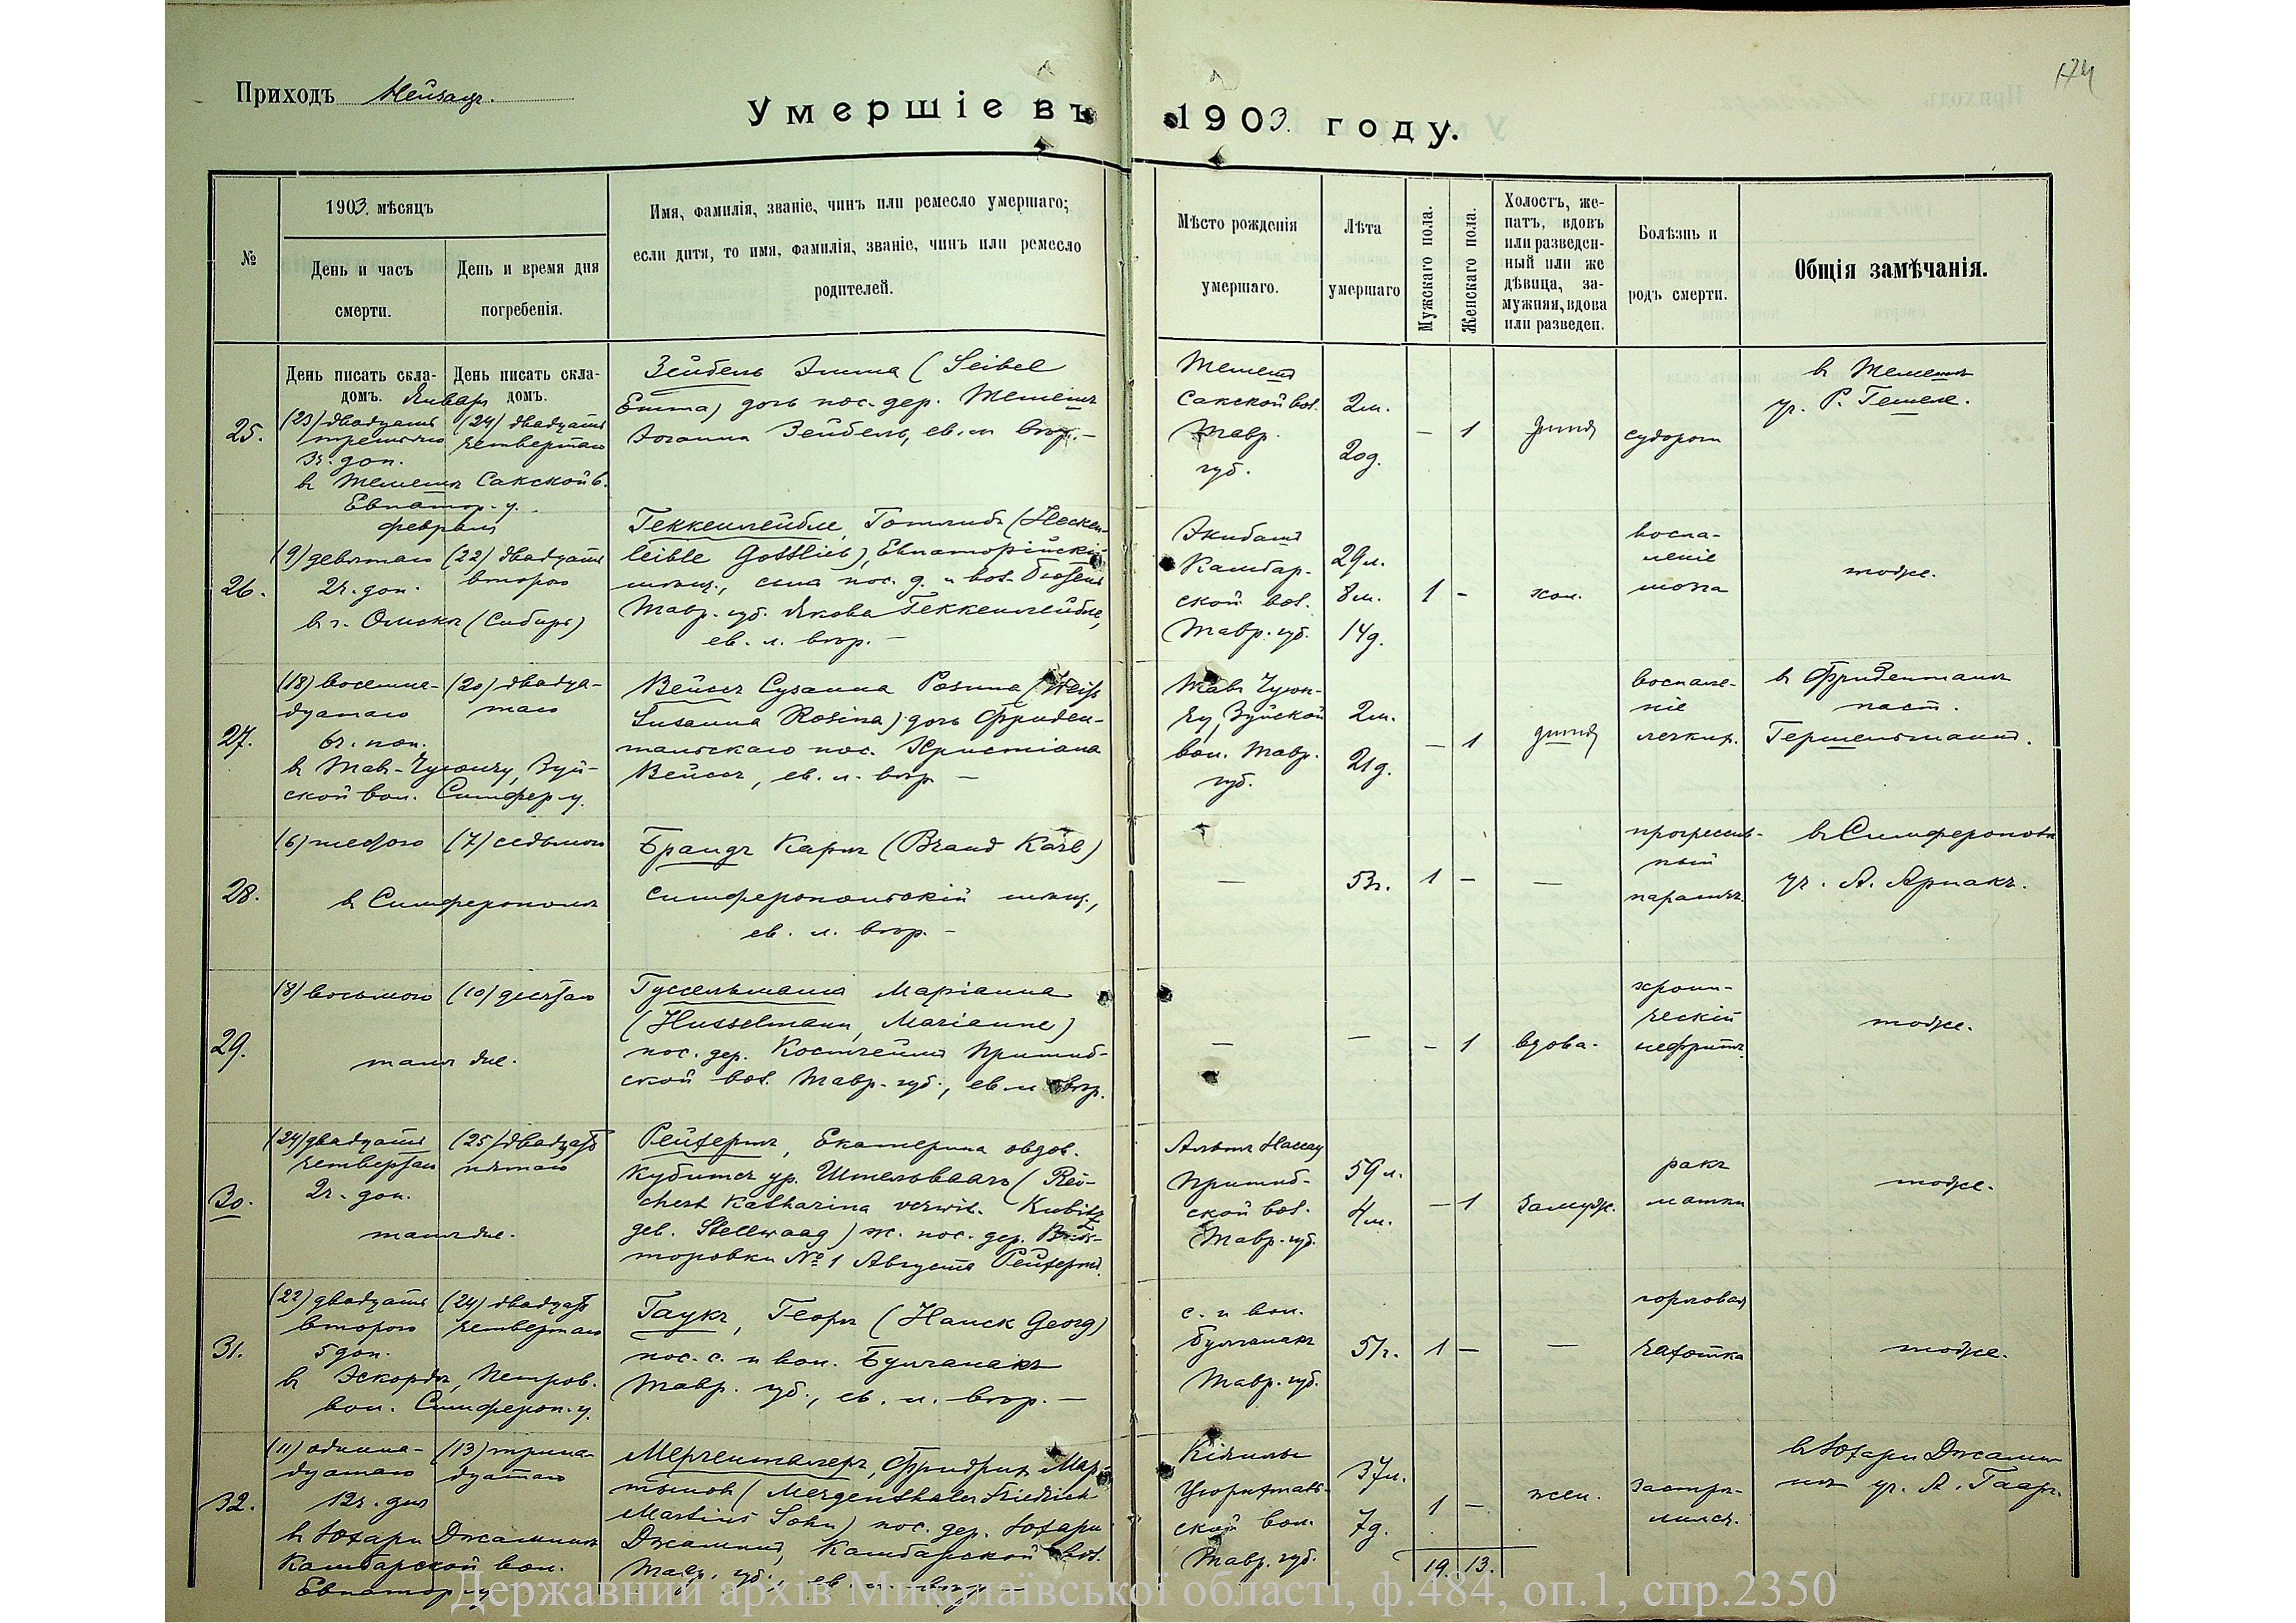 Приходъ Нейзацъ.
174
Умершіе въ 1903. году.
№
1903. мѣсяцъ
День и часъ
смерти.
День и время дня
погребенія.
Имя, фамилія, званіе, чинъ или ремесло умершаго;
если дитя, то имя, фамилія, званіе, чинъ или ремесло
родителей.
Мѣсто рожденія
умершаго.
Лѣта
умершаго
Мужскаго пола.
Женскаго пола.
Холостъ, же-
натъ, вдовъ
или разведен-
ный или же
дѣвица, за-
мужняя, вдова
или разведен.
Болѣзнь и
родъ смерти.
Общія замѣчанія.
День писать скла-
домъ.
День писать скла-
домъ.
Январь
25.
(23) двадцать
третьяго
3ч. доп.
(24) двадцать
четвертаго
в Темешъ Сакской в.
Евпатор. у.
Зейбель Эмма (Seibel
Emma) дочь пос. дер. Темешъ
Іоганна Зейбель, ев. л. вѣр. —
Темешъ
Сакской вол.
Тавр.
губ.
2м.
20д.
—
1
дитя
судороги
в Темешѣ
уч. Р. Гешеле.
февраль
26.
(9) девятаго
2ч. доп.
(22) двадцать
второго
в г. Омскѣ (Сибирь)
Геккенлейбле, Готлибъ (Hecken-
leible Gottlieb), Евпаторійскій
мѣщ., сына пос. д. и вол.
Тавр. губ. Якова Геккенлейбле,
ев. л. вѣр. —
Экибашъ
Камбар-
ской вол.
Тавр. губ.
29л.
8м.
14д.
1
-
хол.
воспа-
леніе
мозга
тоже.
27.
(18) восемна-
дцатаго
6ч. поп.
(20) двадца-
таго
в Тав-Чуюнчу, Зуй-
ской вол. Симфер. у.
Вейссъ Сузанна Розина (Weiss
Susanna Rosina) дочь Фриден-
тальскаго пос. Христіана
Вейссъ, ев. л. вѣр. —
Тавъ Чуюн-
чу, Зуйской
вол. Тавр.
губ.
2м.
21д.
—
1
дитя
воспале-
ніе
легких.
в Фриденталѣ
паст.
Гершельманъ.
28.
(6) шестого
(7) седьмого
в Симферополѣ
Брандъ Карлъ (Brand Karl)
симферопольскій мѣщ.,
ев. л. вѣр. —
—
53г.
1
—
—
прогрессив-
ный
паралич.
в Симферополѣ
уч. А. Арнакъ.
29.
(8) восьмого
(10) десятаго
тамъ же.
Гуссельманъ Маріанна
(Husselmann, Marianne)
пос. дер. Костгеймъ Пришиб-
ской вол. Тавр. губ., ев. л. вѣр.
—
—
—
1
вдова.
хрони-
ческій
нефритъ.
тоже.
30.
(24) двадцать
четвертаго
2ч. доп.
(25) двадцать
пятаго
тамъ же.
Рейхертъ, Екатерина овдов.
Кубитсъ ур. Штельваагъ (Rei-
chert Katharina verwit. Kubitz
geb. Stellwaag) ж. пос. дер. Вик-
торовки № 1 Августа Рейхертъ.
Альтъ Нассау
Пришиб-
ской вол.
Тавр. губ.
59л.
4м.
—
1
замужн.
ракъ
матки
тоже.
31.
(22) двадцать
второго
5 доп.
(24) двадцать
четвертаго
в Эскорды, Петров.
вол. Симфероп. у.
Гаукъ, Георгъ (Hauck Georg)
пос. с. и вол. Булганакъ
Тавр. губ., ев. л. вѣр. —
с. и вол.
Булганакъ
Тавр. губ.
51г.
1
—
—
горловая
чахотка
тоже.
32.
(11) одинна-
дцатаго
12ч. дня
(13) трина-
дцатаго
в Юхари Джаминъ
Камбарской вол.
Евпатор. у.
Мергенталеръ, Фридрихъ Мар-
тыновъ (Mergenthaler Friedrich
Martins Sohn) пос. дер. Юхари
Джаминъ, Камбарской вол.
Тавр. губ., ев. л. вѣр. —
Цюрихталь-
ской вол.
Тавр. губ.
37л.
7д.
1
—
жен.
застрѣ-
лился.
в Юхари Джами-
нѣ уч. А. Гааръ.
19. 13.
Державний архів Миколаївської області, ф.484, оп.1, спр.2350